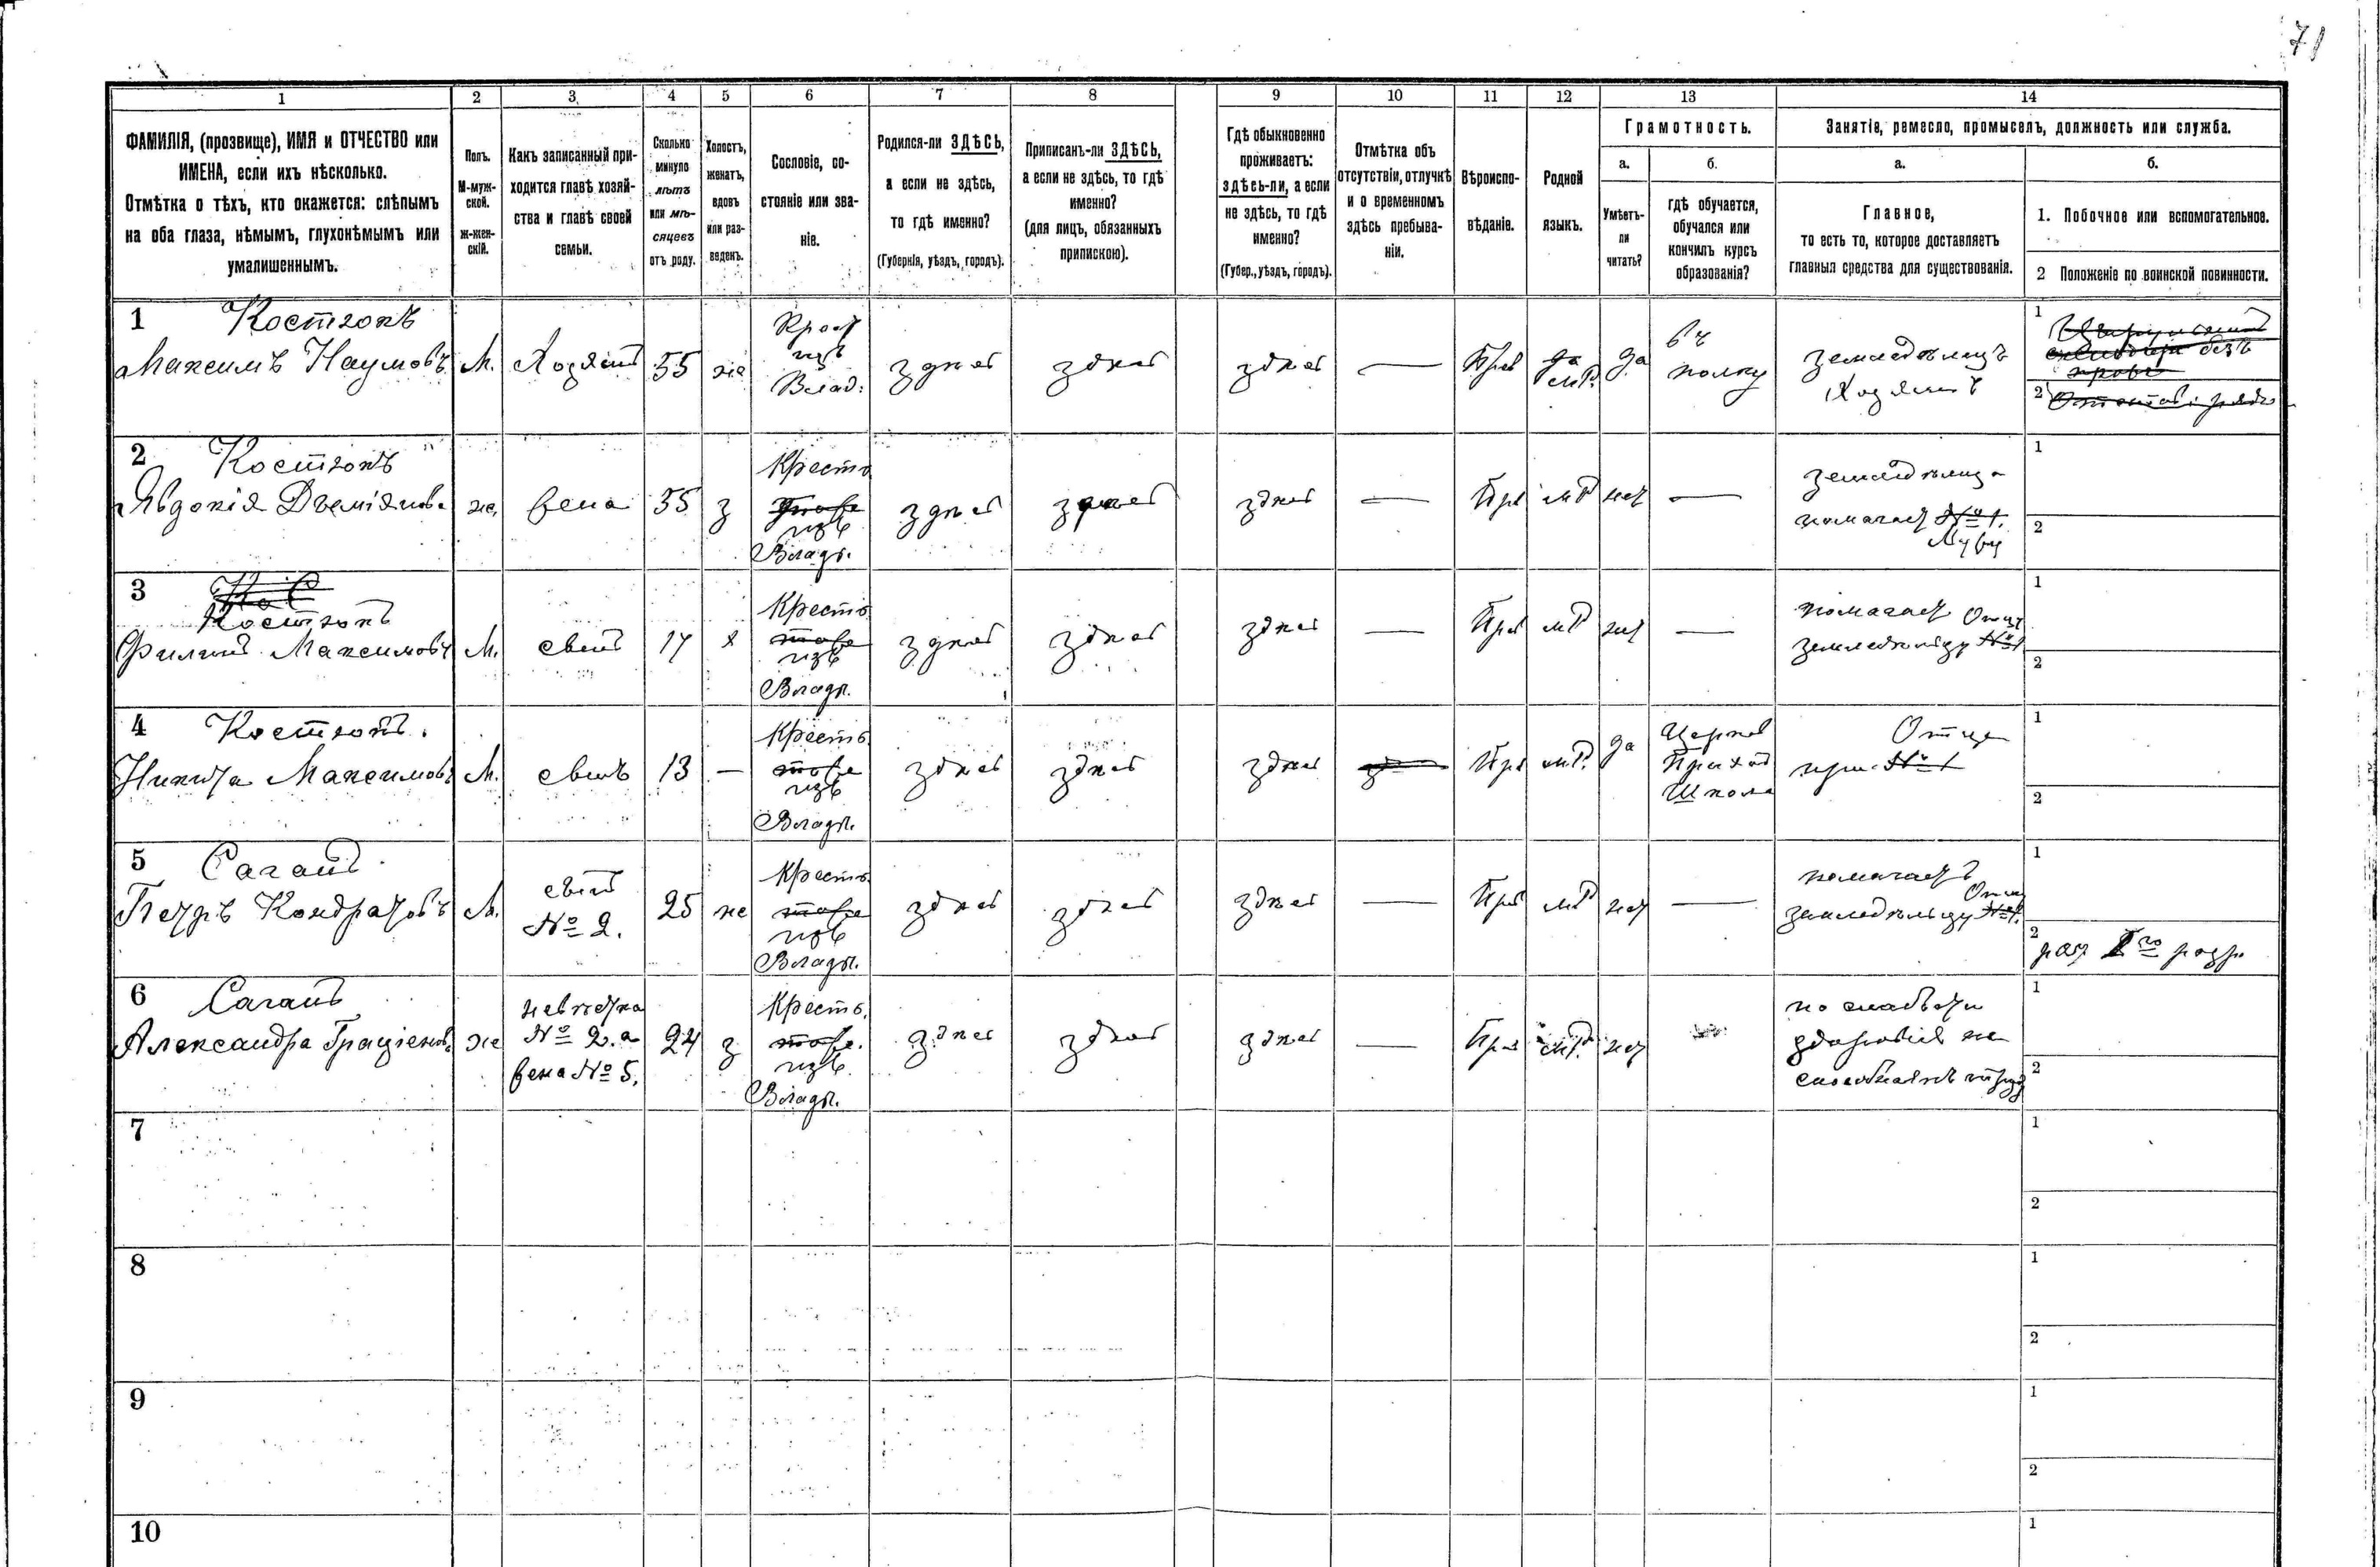 71
1
2
3
4
5
6
7
8
9
10
11
12
13
14
ФАМИЛІЯ, (прозвище), ИМЯ и ОТЧЕСТВО или
ИМЕНА, если ихъ нѣсколько.
Отмѣтка о тѣхъ, кто окажется: слѣпымъ
на оба глаза, нѣмымъ, глухонѣмымъ или
умалишеннымъ.
Полъ.
М-муж-
ской.
Ж-жен-
скій.
Какъ записанный при-
ходится главѣ хозяй-
ства и главѣ своей
семьи.
Сколько
минуло
лѣтъ
или мѣ-
сяцевъ
отъ роду.
Холостъ,
женатъ,
вдовъ
или раз-
веденъ.
Сословіе, со-
стояніе или зва-
ніе.
Родился-ли ЗДѢСЬ,
а если не здѣсь,
то гдѣ именно?
(Губернія, уѣздъ, городъ).
Приписанъ-ли ЗДѢСЬ,
а если не здѣсь, то гдѣ
именно?
(для лицъ, обязанныхъ
припискою).
Гдѣ обыкновенно
проживаетъ:
здѣсь-ли, а если
не здѣсь, то гдѣ
именно?
(Губер., уѣздъ, городъ).
Отмѣтка объ
отсутствіи, отлучкѣ
и о временномъ
здѣсь пребыва-
ніи.
Вѣроиспо-
вѣданіе.
Родной
языкъ.
Грамотность.
а.
Умѣетъ-
ли
читать?
б.
гдѣ обучается,
обучался или
кончилъ курсъ
образованія?
Занятіе, ремесло, промыселъ, должность или служба.
а.
Главное,
то есть то, которое доставляетъ
главныя средства для существованія.
б.
1. Побочное или вспомогательное.
2 Положеніе по воинской повинности.
1 Костюкъ
Максимъ Наумовъ
М.
Хозяинъ
55
же
Крест
изъ
Влад.
здѣсь
здѣсь
здѣсь
—
Прав
мР.
да
въ
полку
земледѣлецъ
Хозяинъ
1
безъ
2
2 Костюкъ
Явдокія Дем
же.
жена
55
з
Кресть
изъ
Влад.
здѣсь
здѣсь
здѣсь
—
Прв
мР
нет
—
помагает №1.
Мужу
1
2
3 Костюкъ
Филипъ Максимовъ
М.
сынъ
17
х
Кресть
изъ
Влад.
здѣсь
здѣсь
здѣсь
—
Прв
мР
нет
—
помагает Отцу
земледѣльцу №1
1
2
4 Костюкъ.
Никита Максимовъ
М.
сынъ
13
—
Кресть
изъ
Влад.
здѣсь
здѣсь
здѣсь
Прв
мР.
да
Церков
Приход
Школа
Отце
при №1
1
2
5 Саганъ
Петръ Кондратовъ
М.
сынъ
№ 2.
25
же
Кресть
изъ
Влад.
здѣсь
здѣсь
здѣсь
—
Прв
мР
нет
—
помагаетъ
Отцу
земледѣльцу №1.
1
2
6 Саганъ
Александра
же
невѣстка
№ 2. а
жена № 5.
24
з
Кресть.
изъ
Влад.
здѣсь
здѣсь
здѣсь
—
Прв
мР.
нет
по слабости
здоровія не
способная къ труду
1
2
7
1
2
8
1
2
9
1
2
10
1